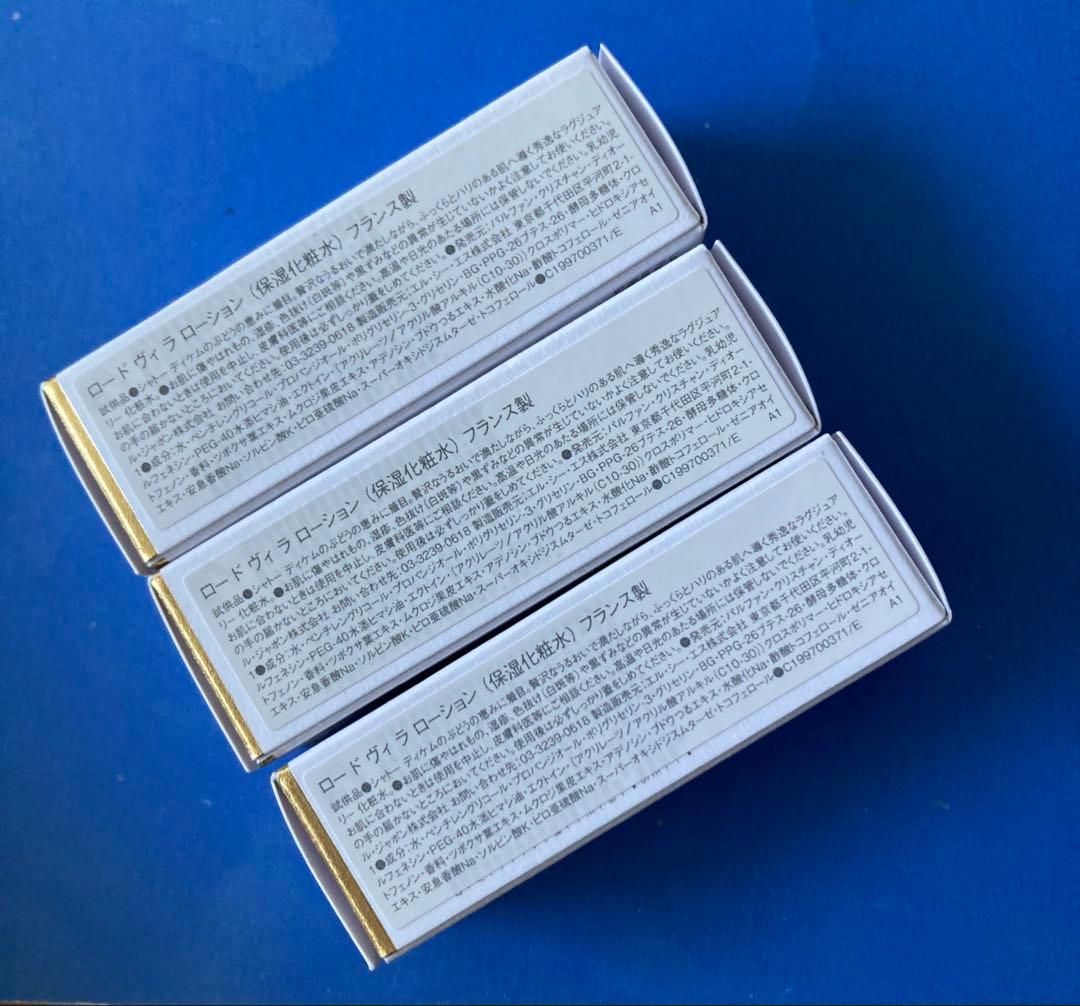 ロード ヴィ ラ ローション (保湿化粧水) フランス製
試供品●シャトー ディケムのぶどうの恵みに着目。贅沢なうるおいで満たしながら、ふっくらとハリのある肌へ導く秀逸なラグジュア
リー 化粧水。●お肌に傷やはれもの、湿疹、色抜け(白斑等)や黒ずみなどの異常が生じていないかよく注意してお使いください。
お肌に合わないときは使用を中止し、皮膚科医等にご相談ください。高温や日光のあたる場所には保管しないでください。乳幼児
の手の届かないところにおいてください。使用後は必ずしっかり蓋をしめてください。●発売元:パルファン・クリスチャン・ディオー
ル・ジャポン株式会社 お問い合わせ先:03-3239-0618 製造販売元:エル・シー・エス株式会社 東京都千代田区平河町2-1-
1●成分:水・ペンチレングリコール・プロパンジオール・ポリグリセリン-3・グリセリン・BG・PPG-26ブテス-26・酵母多糖体・クロ
ルフェネシン・PEG-40水添ヒマシ油・エクトイン・(アクリレーツ/アクリル酸アルキル(C10-30))クロスポリマー・ヒドロキシアセ
トフェノン・香料・ツボクサ葉エキス・ムクロジ果皮エキス・アデノシン・ブドウつるエキス・水酸化Na・酢酸トコフェロール・ゼニアオイ
エキス・安息香酸Na・ソルビン酸K・ピロ亜硫酸Na・スーパーオキシドジスムターゼ・トコフェロール●C199700371/E
A1
ロード ヴィ ラ ローション (保湿化粧水) フランス製
試供品●シャトー ディケムのぶどうの恵みに着目。贅沢なうるおいで満たしながら、ふっくらとハリのある肌へ導く秀逸なラグジュア
リー 化粧水。●お肌に傷やはれもの、湿疹、色抜け(白斑等)や黒ずみなどの異常が生じていないかよく注意してお使いください。
お肌に合わないときは使用を中止し、皮膚科医等にご相談ください。高温や日光のあたる場所には保管しないでください。乳幼児
の手の届かないところにおいてください。使用後は必ずしっかり蓋をしめてください。●発売元:パルファン・クリスチャン・ディオー
ル・ジャポン株式会社 お問い合わせ先:03-3239-0618 製造販売元:エル・シー・エス株式会社 東京都千代田区平河町2-1-
1●成分:水・ペンチレングリコール・プロパンジオール・ポリグリセリン-3・グリセリン・BG・PPG-26ブテス-26・酵母多糖体・クロ
ルフェネシン・PEG-40水添ヒマシ油・エクトイン・(アクリレーツ/アクリル酸アルキル(C10-30))クロスポリマー・ヒドロキシアセ
トフェノン・香料・ツボクサ葉エキス・ムクロジ果皮エキス・アデノシン・ブドウつるエキス・水酸化Na・酢酸トコフェロール・ゼニアオイ
エキス・安息香酸Na・ソルビン酸K・ピロ亜硫酸Na・スーパーオキシドジスムターゼ・トコフェロール●C199700371/E
A1
ロード ヴィ ラ ローション (保湿化粧水) フランス製
試供品●シャトー ディケムのぶどうの恵みに着目。贅沢なうるおいで満たしながら、ふっくらとハリのある肌へ導く秀逸なラグジュア
リー 化粧水。●お肌に傷やはれもの、湿疹、色抜け(白斑等)や黒ずみなどの異常が生じていないかよく注意してお使いください。
お肌に合わないときは使用を中止し、皮膚科医等にご相談ください。高温や日光のあたる場所には保管しないでください。乳幼児
の手の届かないところにおいてください。使用後は必ずしっかり蓋をしめてください。●発売元:パルファン・クリスチャン・ディオー
ル・ジャポン株式会社 お問い合わせ先:03-3239-0618 製造販売元:エル・シー・エス株式会社 東京都千代田区平河町2-1-
1●成分:水・ペンチレングリコール・プロパンジオール・ポリグリセリン-3・グリセリン・BG・PPG-26ブテス-26・酵母多糖体・クロ
ルフェネシン・PEG-40水添ヒマシ油・エクトイン・(アクリレーツ/アクリル酸アルキル(C10-30))クロスポリマー・ヒドロキシアセ
トフェノン・香料・ツボクサ葉エキス・ムクロジ果皮エキス・アデノシン・ブドウつるエキス・水酸化Na・酢酸トコフェロール・ゼニアオイ
エキス・安息香酸Na・ソルビン酸K・ピロ亜硫酸Na・スーパーオキシドジスムターゼ・トコフェロール●C199700371/E
A1